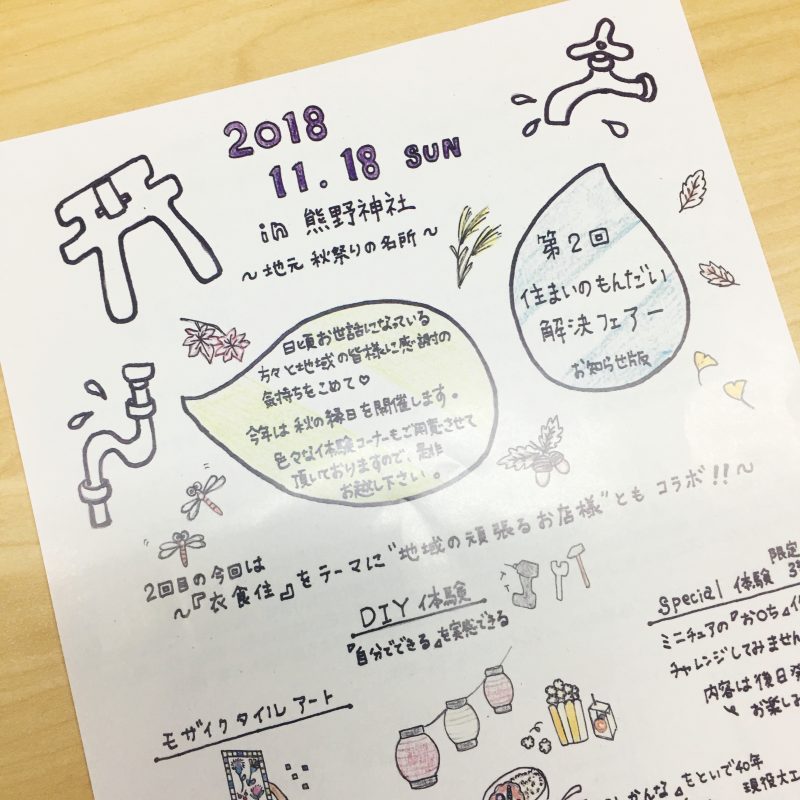 2018
11.18 SUN
in 熊野神社
～地元 秋祭りの名所～
第2回
住まいのもんだい
解決フェアー
お知らせ版
日頃お世話になっている
方々と地域の皆様に感謝の
気持ちをこめて♡
今年は秋の縁日を開催します。
色々な体験コーナーもご用意させて
頂いておりますので、是非
お越し下さい。
2回目の今回は
～『衣食住』をテーマに"地域の頑張るお店様"とも コラボ!!～
DIY 体験
『自分でできる』を実感できる
限定
Special 体験
ミニチュアの『お○ち』
チャレンジしてみません
内容は後日
お楽し
モザイクタイル アート
かんな』をといで40年
現役大工